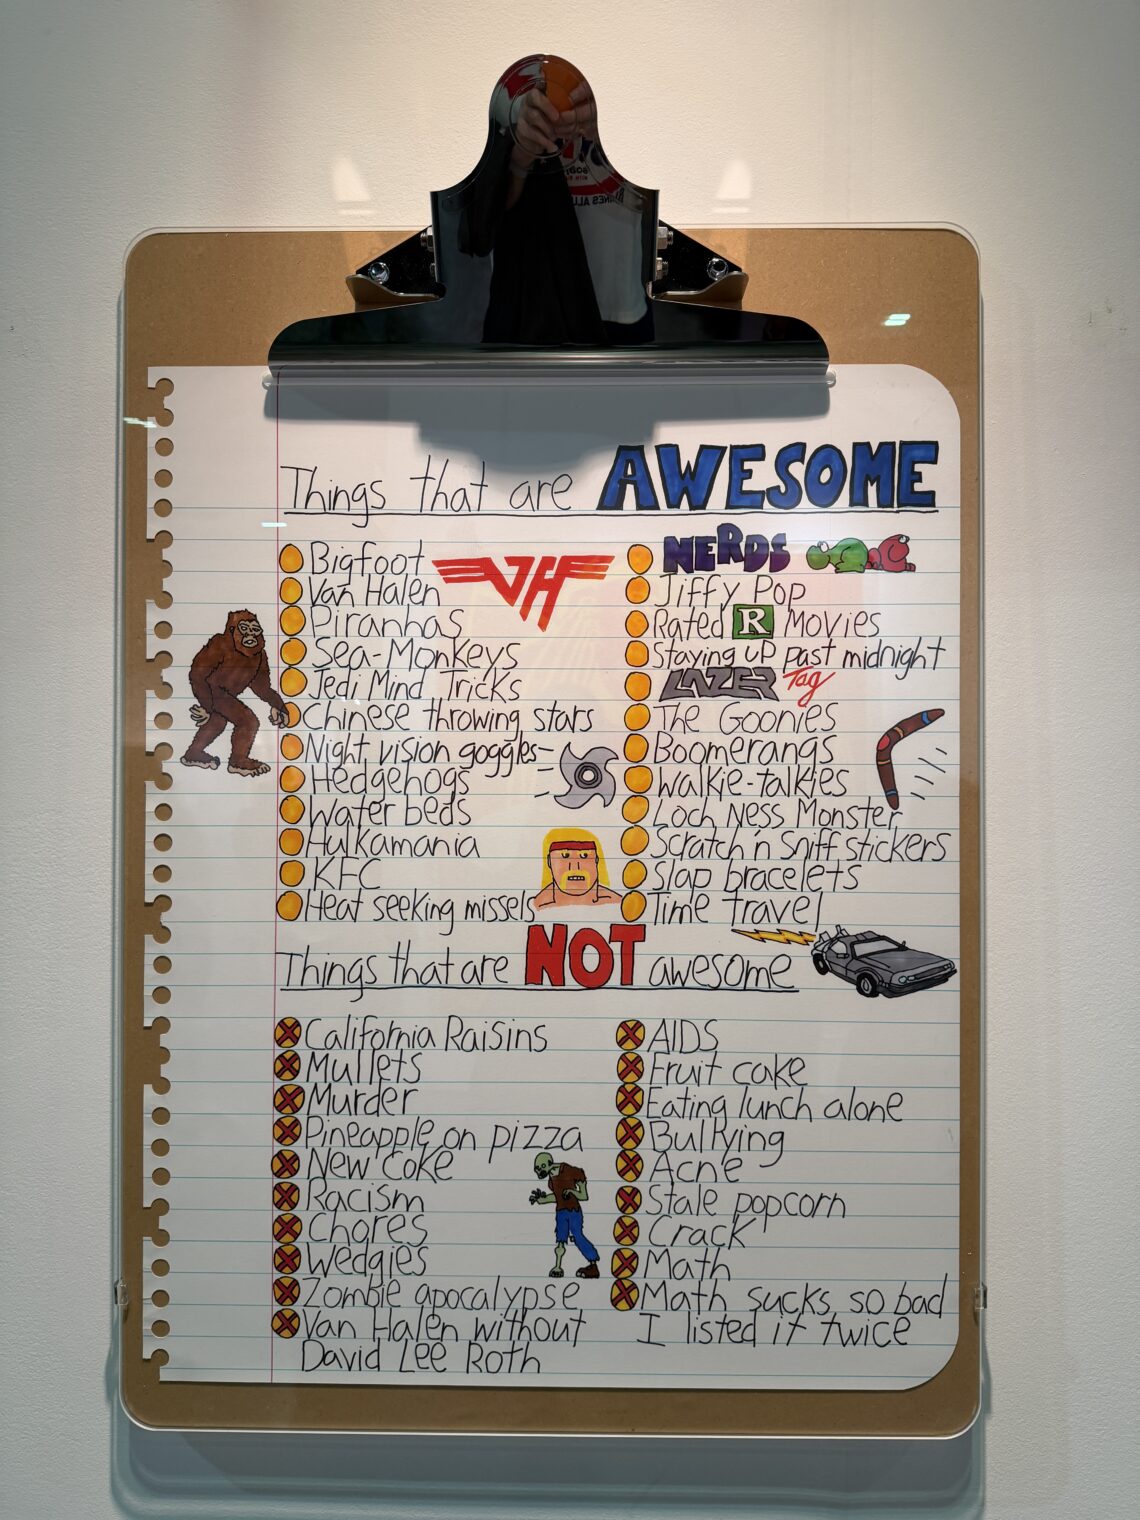 Things that are AWESOME
Bigfoot
Van Halen
VH
Piranhas
Sea-Monkeys
Jedi Mind Tricks
Chinese throwing stars
Night vision goggles
Hedgehogs
Water beds
Hulkamania
KFC
Heat seeking missels
NERDS
Jiffy Pop
Rated R Movies
Staying up past midnight
LAZER Tag
The Goonies
Boomerangs
Walkie-talkies
Loch Ness Monster
Scratch 'n Sniff stickers
Slap bracelets
Time travel
Things that are NOT awesome
California Raisins
Mullets
Murder
Pineapple on pizza
New Coke
Racism
Chores
Wedgies
Zombie apocalypse
Van Halen without
David Lee Roth
AIDS
Fruit cake
Eating lunch alone
Bullying
Acne
Stale popcorn
Crack
Math
Math sucks so bad
I listed it twice